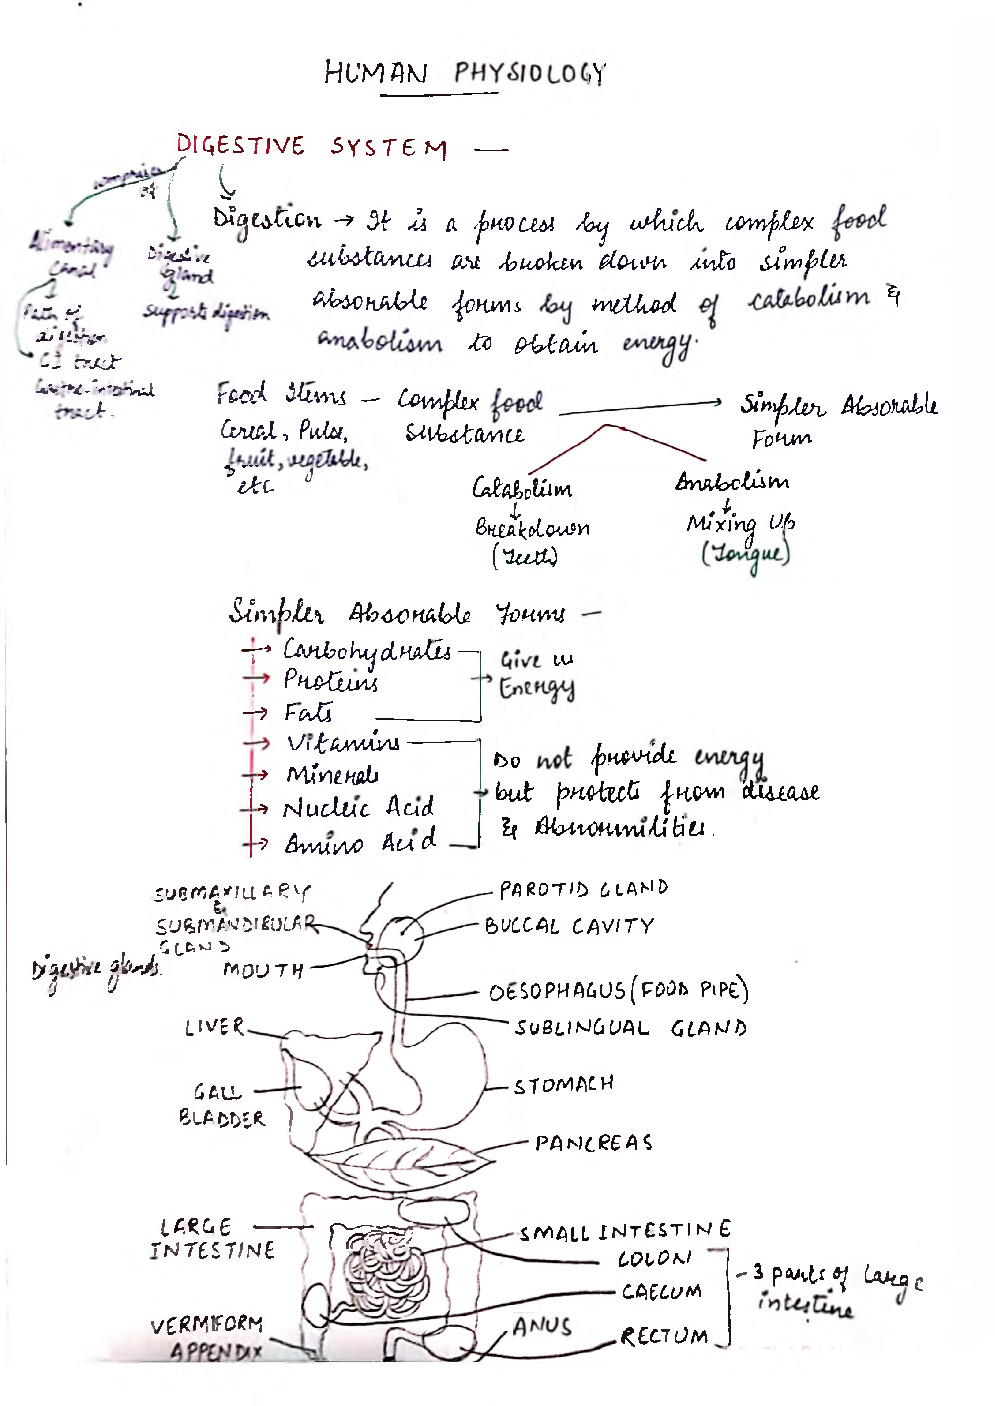 HUMAN PHYSIOLOGY
DIGESTIVE SYSTEM —
comprises of
Alimentary canal
Path of digestion
GI tract
Gastro-intestinal tract.
Digestive gland
supports digestion
Digestion → It is a process by which complex food
substances are broken down into simpler
absorable forms by method of catabolism &
anabolism to obtain energy.
Food Items — Complex food Substance
Cereal, Pulse,
fruit, vegetable,
etc
Simpler Absorable
Form
Catabolism
Breakdown
(Teeth)
Anabolism
Mixing Up
(Tongue)
Simpler Absorable Forms —
→ Carbohydrates
→ Proteins
→ Fats
Give us
Energy
→ Vitamins
→ Minerals
→ Nucleic Acid
→ Amino Acid
Do not provide energy
but protects from disease
& Abnormilities.
SUBMAXILLARY
&
SUBMANDIBULAR
GLAND
Digestive glands.
MOUTH
PAROTID GLAND
BUCCAL CAVITY
OESOPHAGUS (FOOD PIPE)
SUBLINGUAL GLAND
LIVER
GALL
BLADDER
STOMACH
PANCREAS
LARGE
INTESTINE
SMALL INTESTINE
COLON
CAECUM
RECTUM
- 3 parts of Large
intestine
VERMIFORM
APPENDIX
ANUS